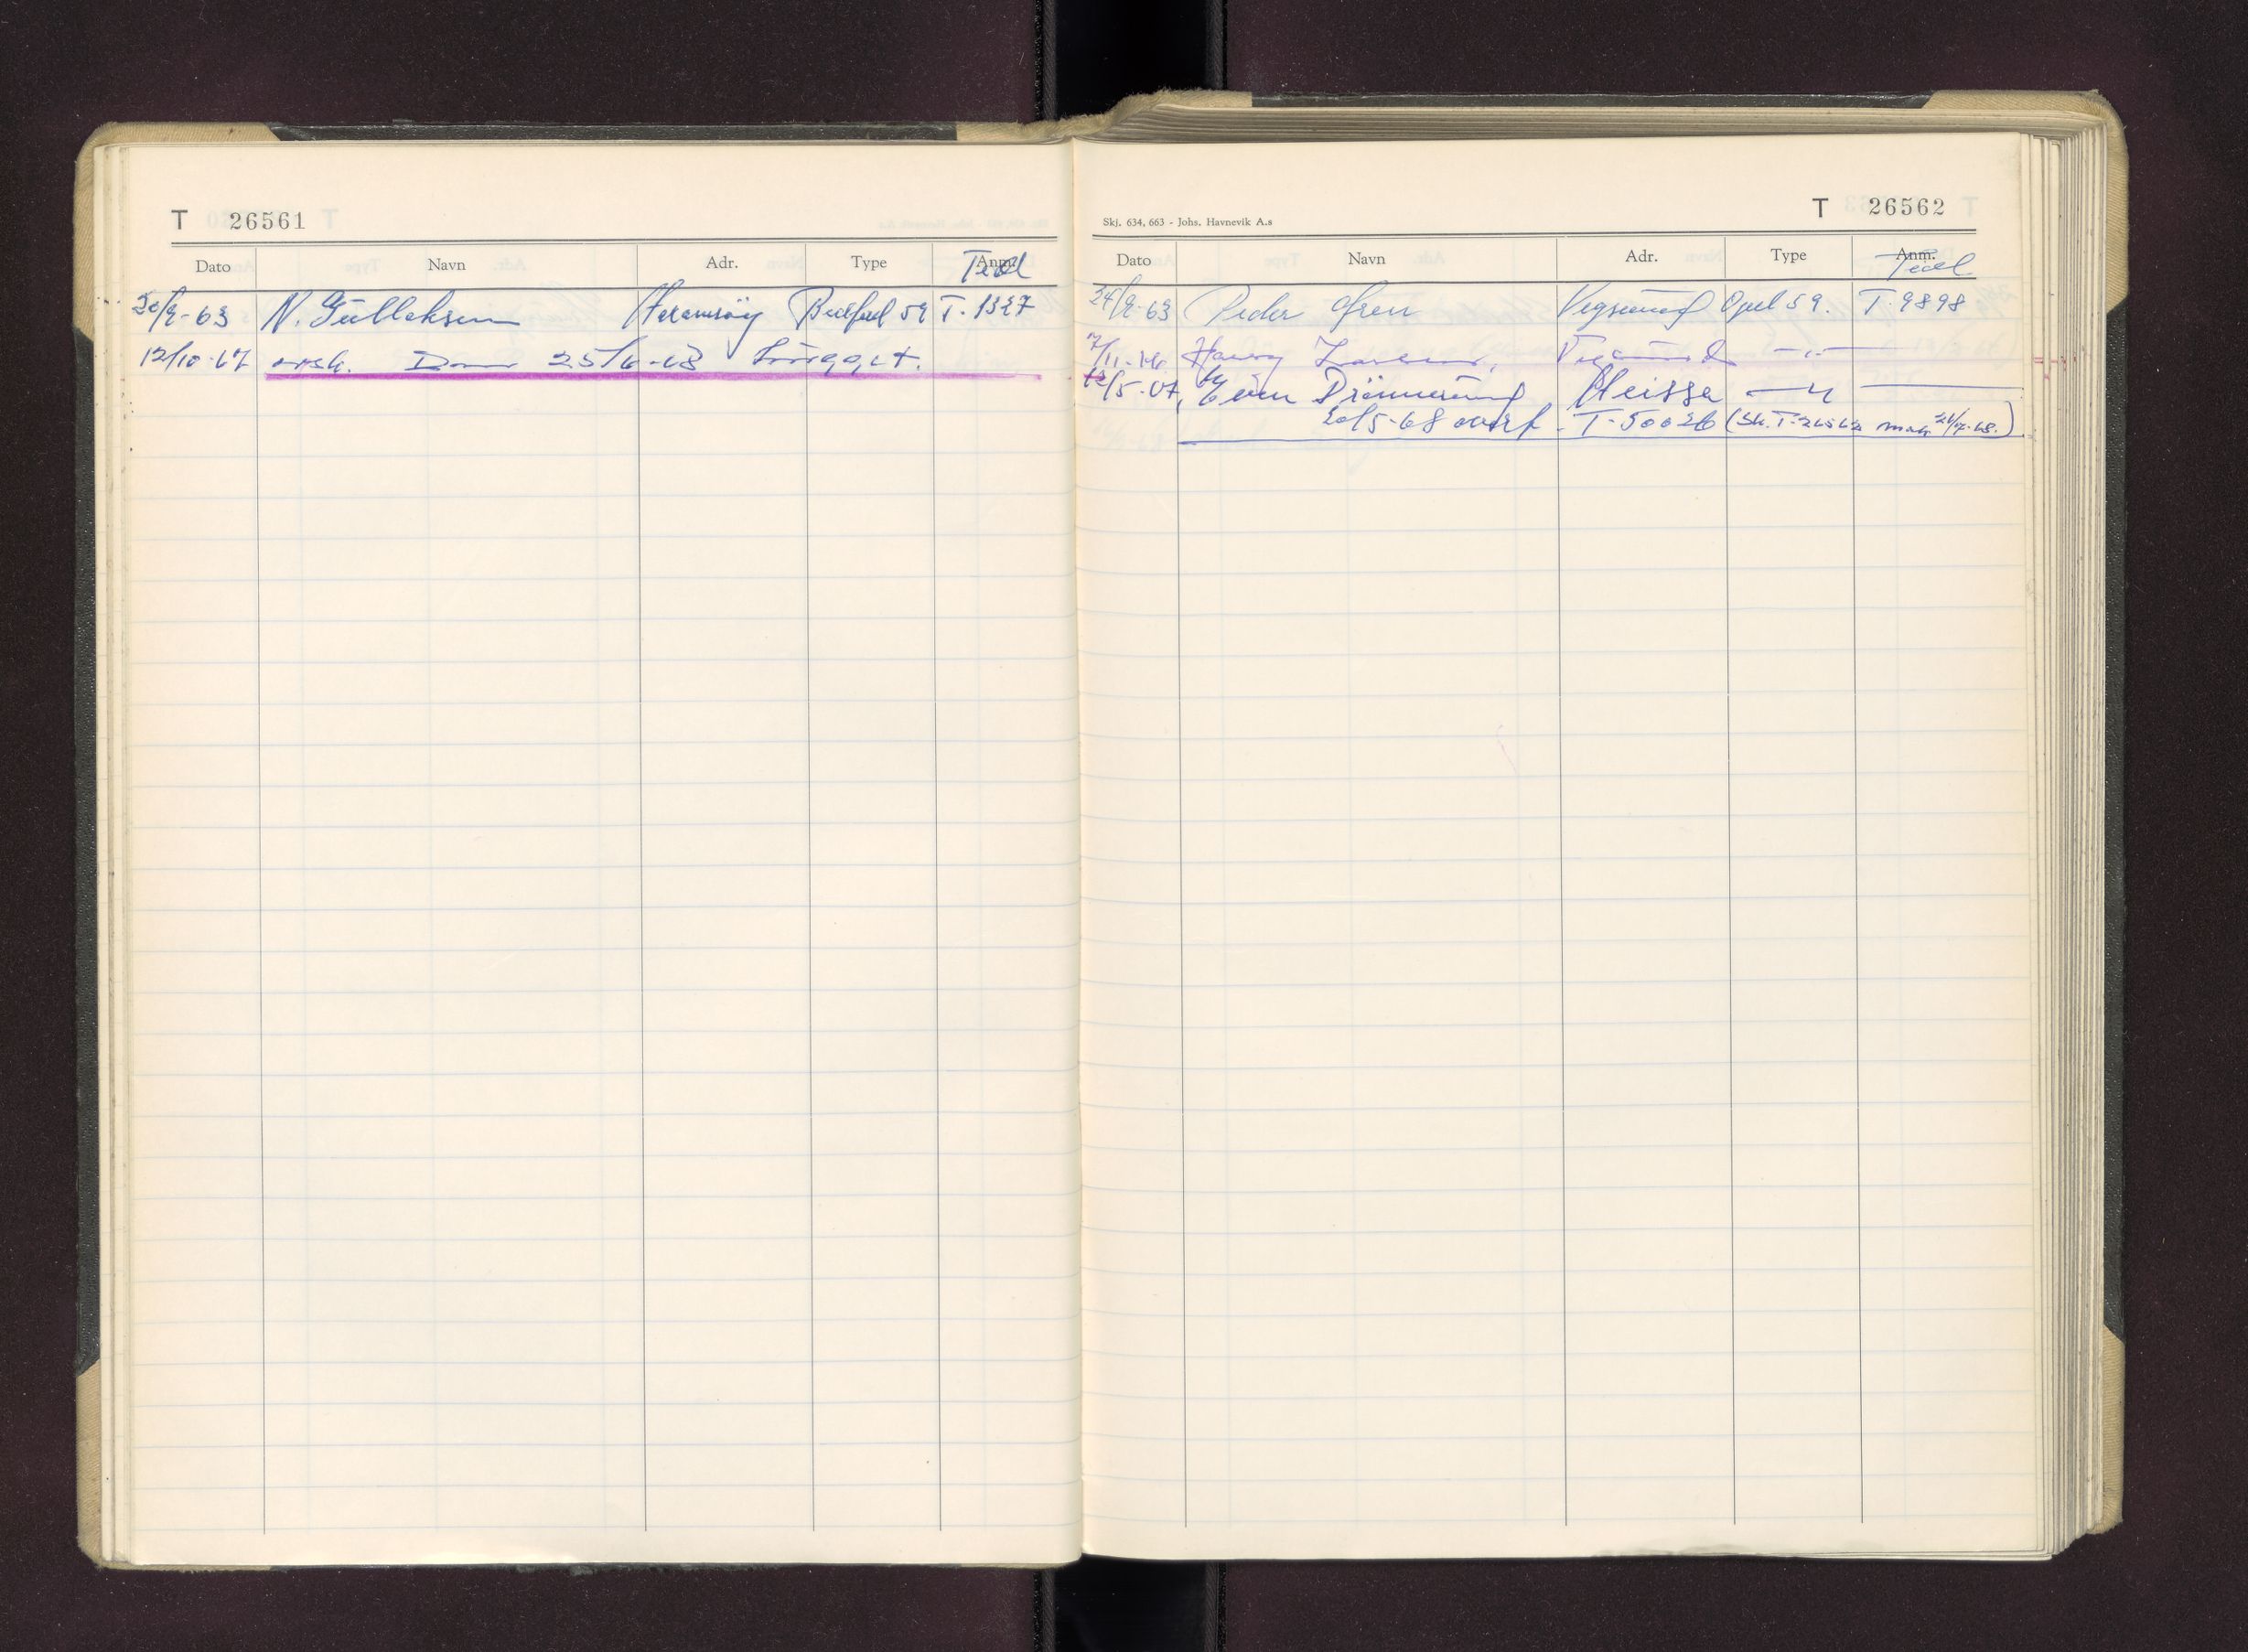 T 26561
Dato Navn Adr. Type Anm.
Tidl
20/9-63 N. Gullaksen Haramsöy Bedford 59 T-1327
12/10-67 avsk. Dam 25/6-68 hugget.
Skj. 634, 663 - Johs. Havnevik A.s
T 26562
Dato Navn Adr. Type Anm.
Tidl
24/9-63 Peder Vegsund Opel 59. T-9898
7/11-66 Harry Larsen, Vegsund -"-
12/5-67, Even Meisse -"-
20/5-68 overf. T-50026 (Sk. T-26562 mak 26/7-68.)